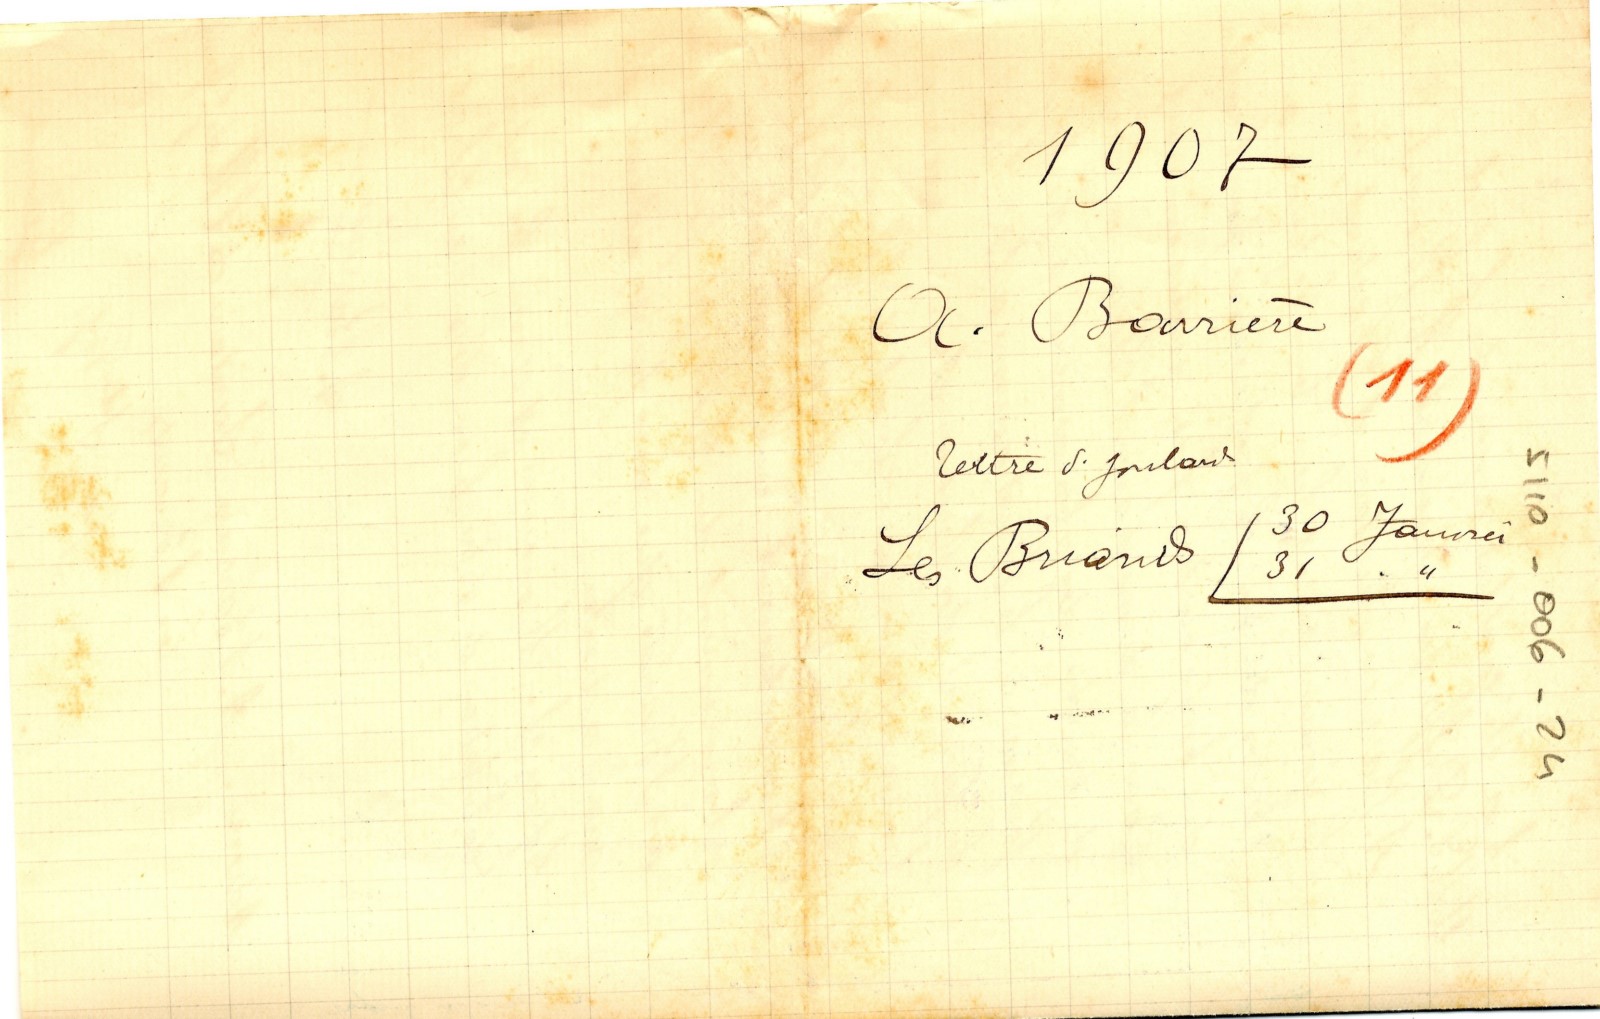 1907
A. Barrière
(11)
Lettre d.
Les Briands 30 Janvier
31 "
42 - 006 - 0115